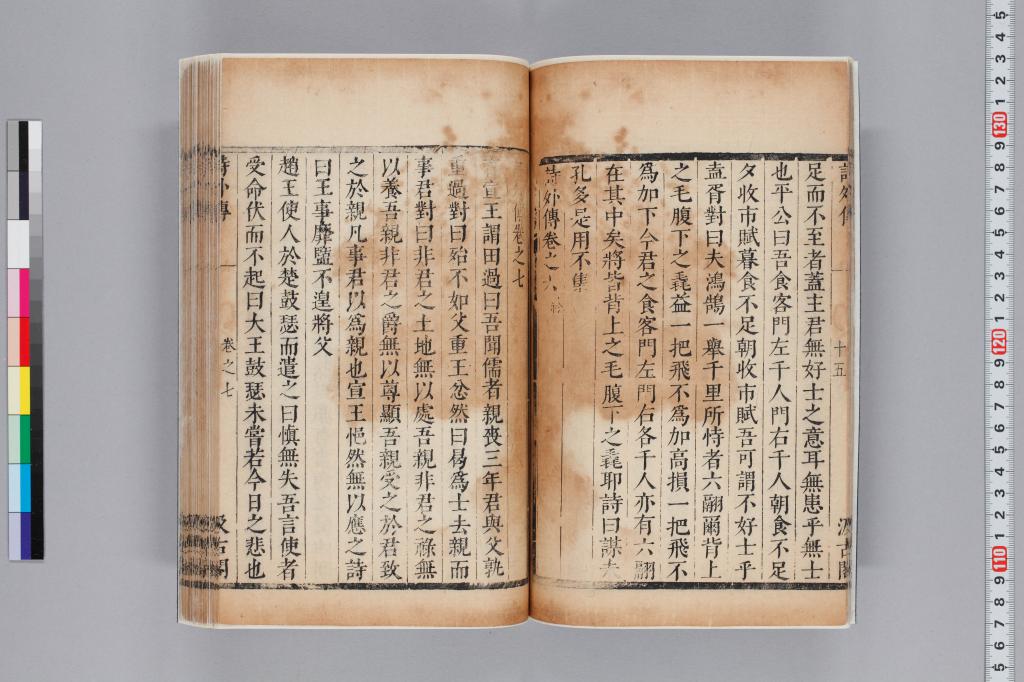 詩外傳 十五 汲古閣
足而不至者蓋主君無好士之意耳無患乎無士
也平公曰吾食客門左千人門右千人朝食不足
夕收市賦暮食不足朝收市賦吾可謂不好士乎
盍胥對曰夫鴻鵠一舉千里所恃者六翮爾背上
之毛腹下之毳益一把飛不爲加高損一把飛不
爲加下今君之食客門左門右各千人亦有六翮
在其中矣將皆背上之毛腹下之毳耶詩曰謀夫
孔多是用不集
詩外傳卷之六
傳卷之七
宣王謂田過曰吾聞儒者親喪三年君與父孰
重過對曰殆不如父重王忿然曰曷爲士去親而
事君對曰非君之土地無以處吾親非君之祿無
以養吾親非君之爵無以尊顯吾親受之於君致
之於親凡事君以爲親也宣王悒然無以應之詩
曰王事靡盬不遑將父
趙王使人於楚鼓瑟而遣之曰愼無失吾言使者
受命伏而不起曰大王鼓瑟未嘗若今日之悲也
詩外傳 一 卷之七 汲古閣
5 4 3 2 1 130 9 8 7 6 5 4 3 2 1 120 9 8 7 6 5 4 3 2 1 110 9 8 7 6 5